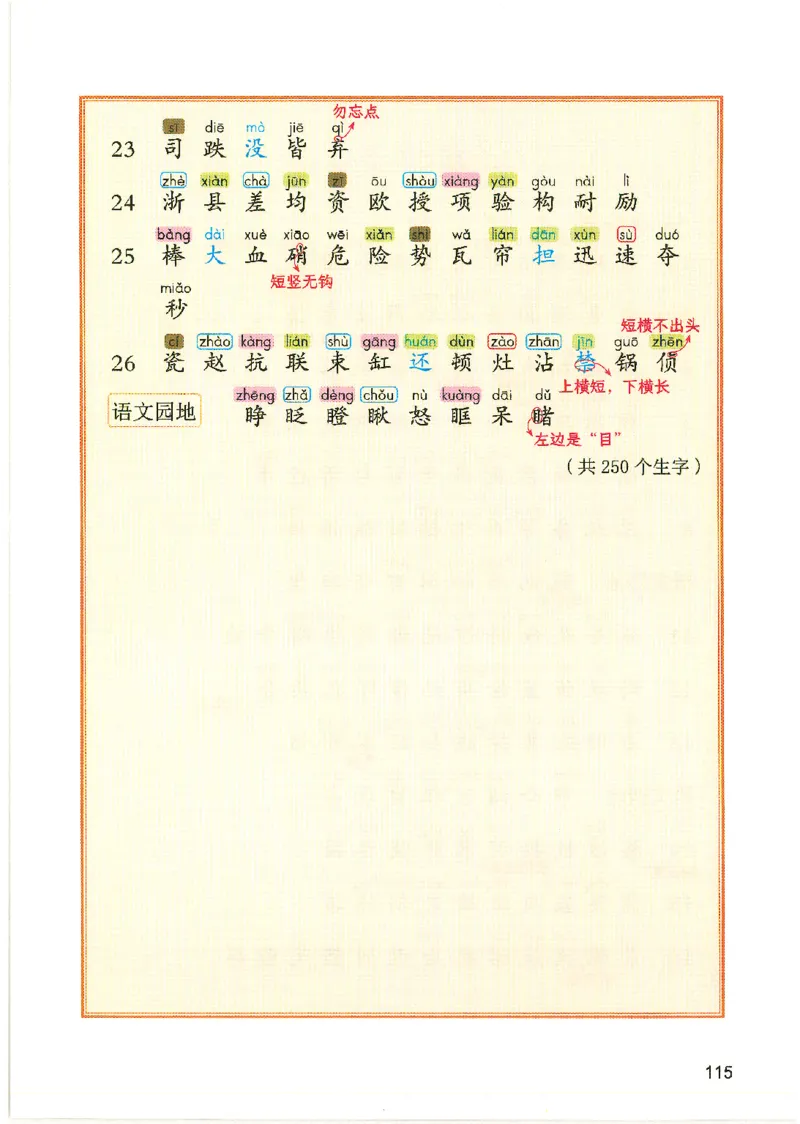 勿忘点
sī diē mò jiē qì
23 司 跌 没 皆 弃
zhè xiàn chà jūn zī ōu shòu xiàng yàn gòu nài lì
24 浙 县 差 均 资 欧 授 项 验 构 耐 励
bàng dài xuè xiāo wēi xiǎn shì wǎ lián dān xùn sù duó
25 棒 大 血 硝 危 险 势 瓦 帘 担 迅 速 夺
短竖无钩
miǎo
秒
短横不出头
cí zhào kàng lián shù gāng huán dùn zào zhān jīn guō zhēn
26 瓷 赵 抗 联 束 缸 还 顿 灶 沾 禁 锅 侦
上横短，下横长
zhēng zhǎ dèng chǒu nù kuàng dāi dǔ
语文园地 睁 眨 瞪 瞅 怒 眶 呆 睹
左边是“目”
（共 250 个生字）
115